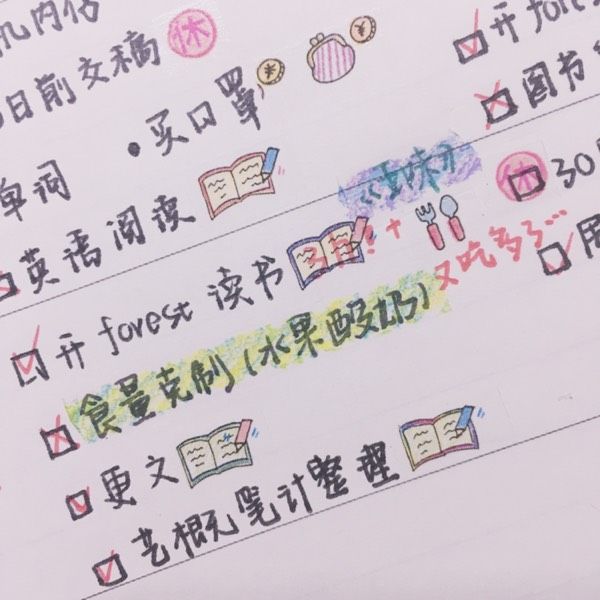 日前交稿 休
• 买口罩
单词
英语阅读
开 forest
图书
休 30
开 forest 读书
食量克制（水果酸奶）
又吃多了…
更文
艺概笔计整理